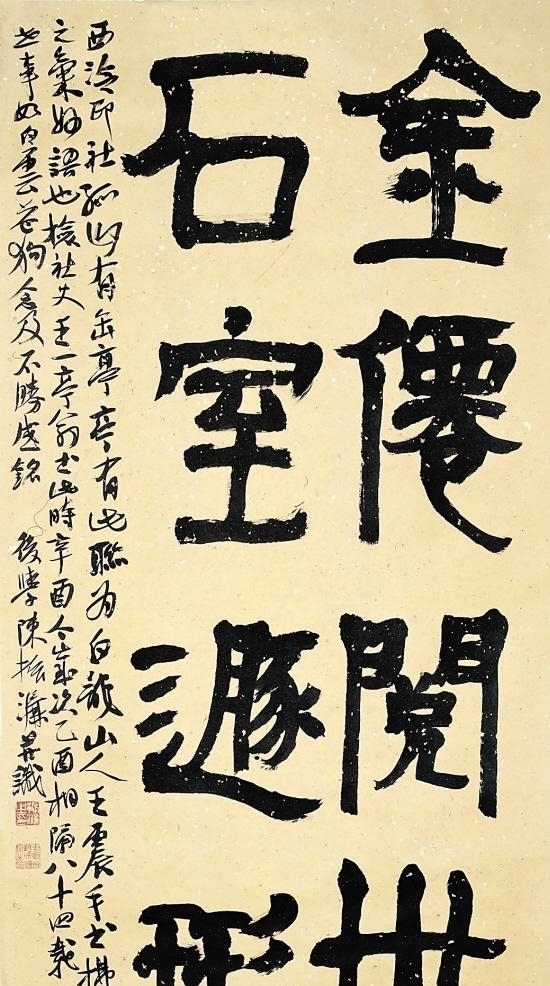 金僊閱世
石室遯形
西泠印社孤山有缶亭亭有此聯為白龍山人王震手书
之氣妙語也撿社史王一亭翁书此時辛酉今歲次乙酉相隔八十四載
世事如白雲蒼狗念及不勝感銘 後學陳振濂並識